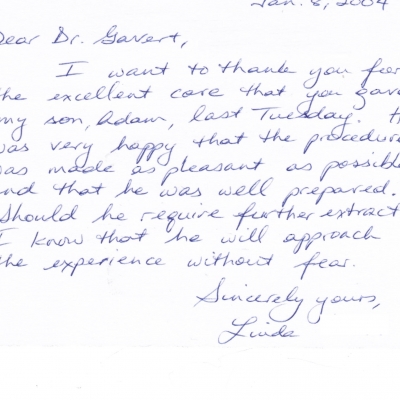 Jan. 8, 2004
Dear Dr. Gavert,
I want to thank you for
the excellent care that you gave
my son, Adam, last Tuesday. H
was very happy that the procedure
was made as pleasant as possible
and that he was well prepared.
Should he require further extract
I know that he will approach
the experience without fear.
Sincerely yours,
Linda